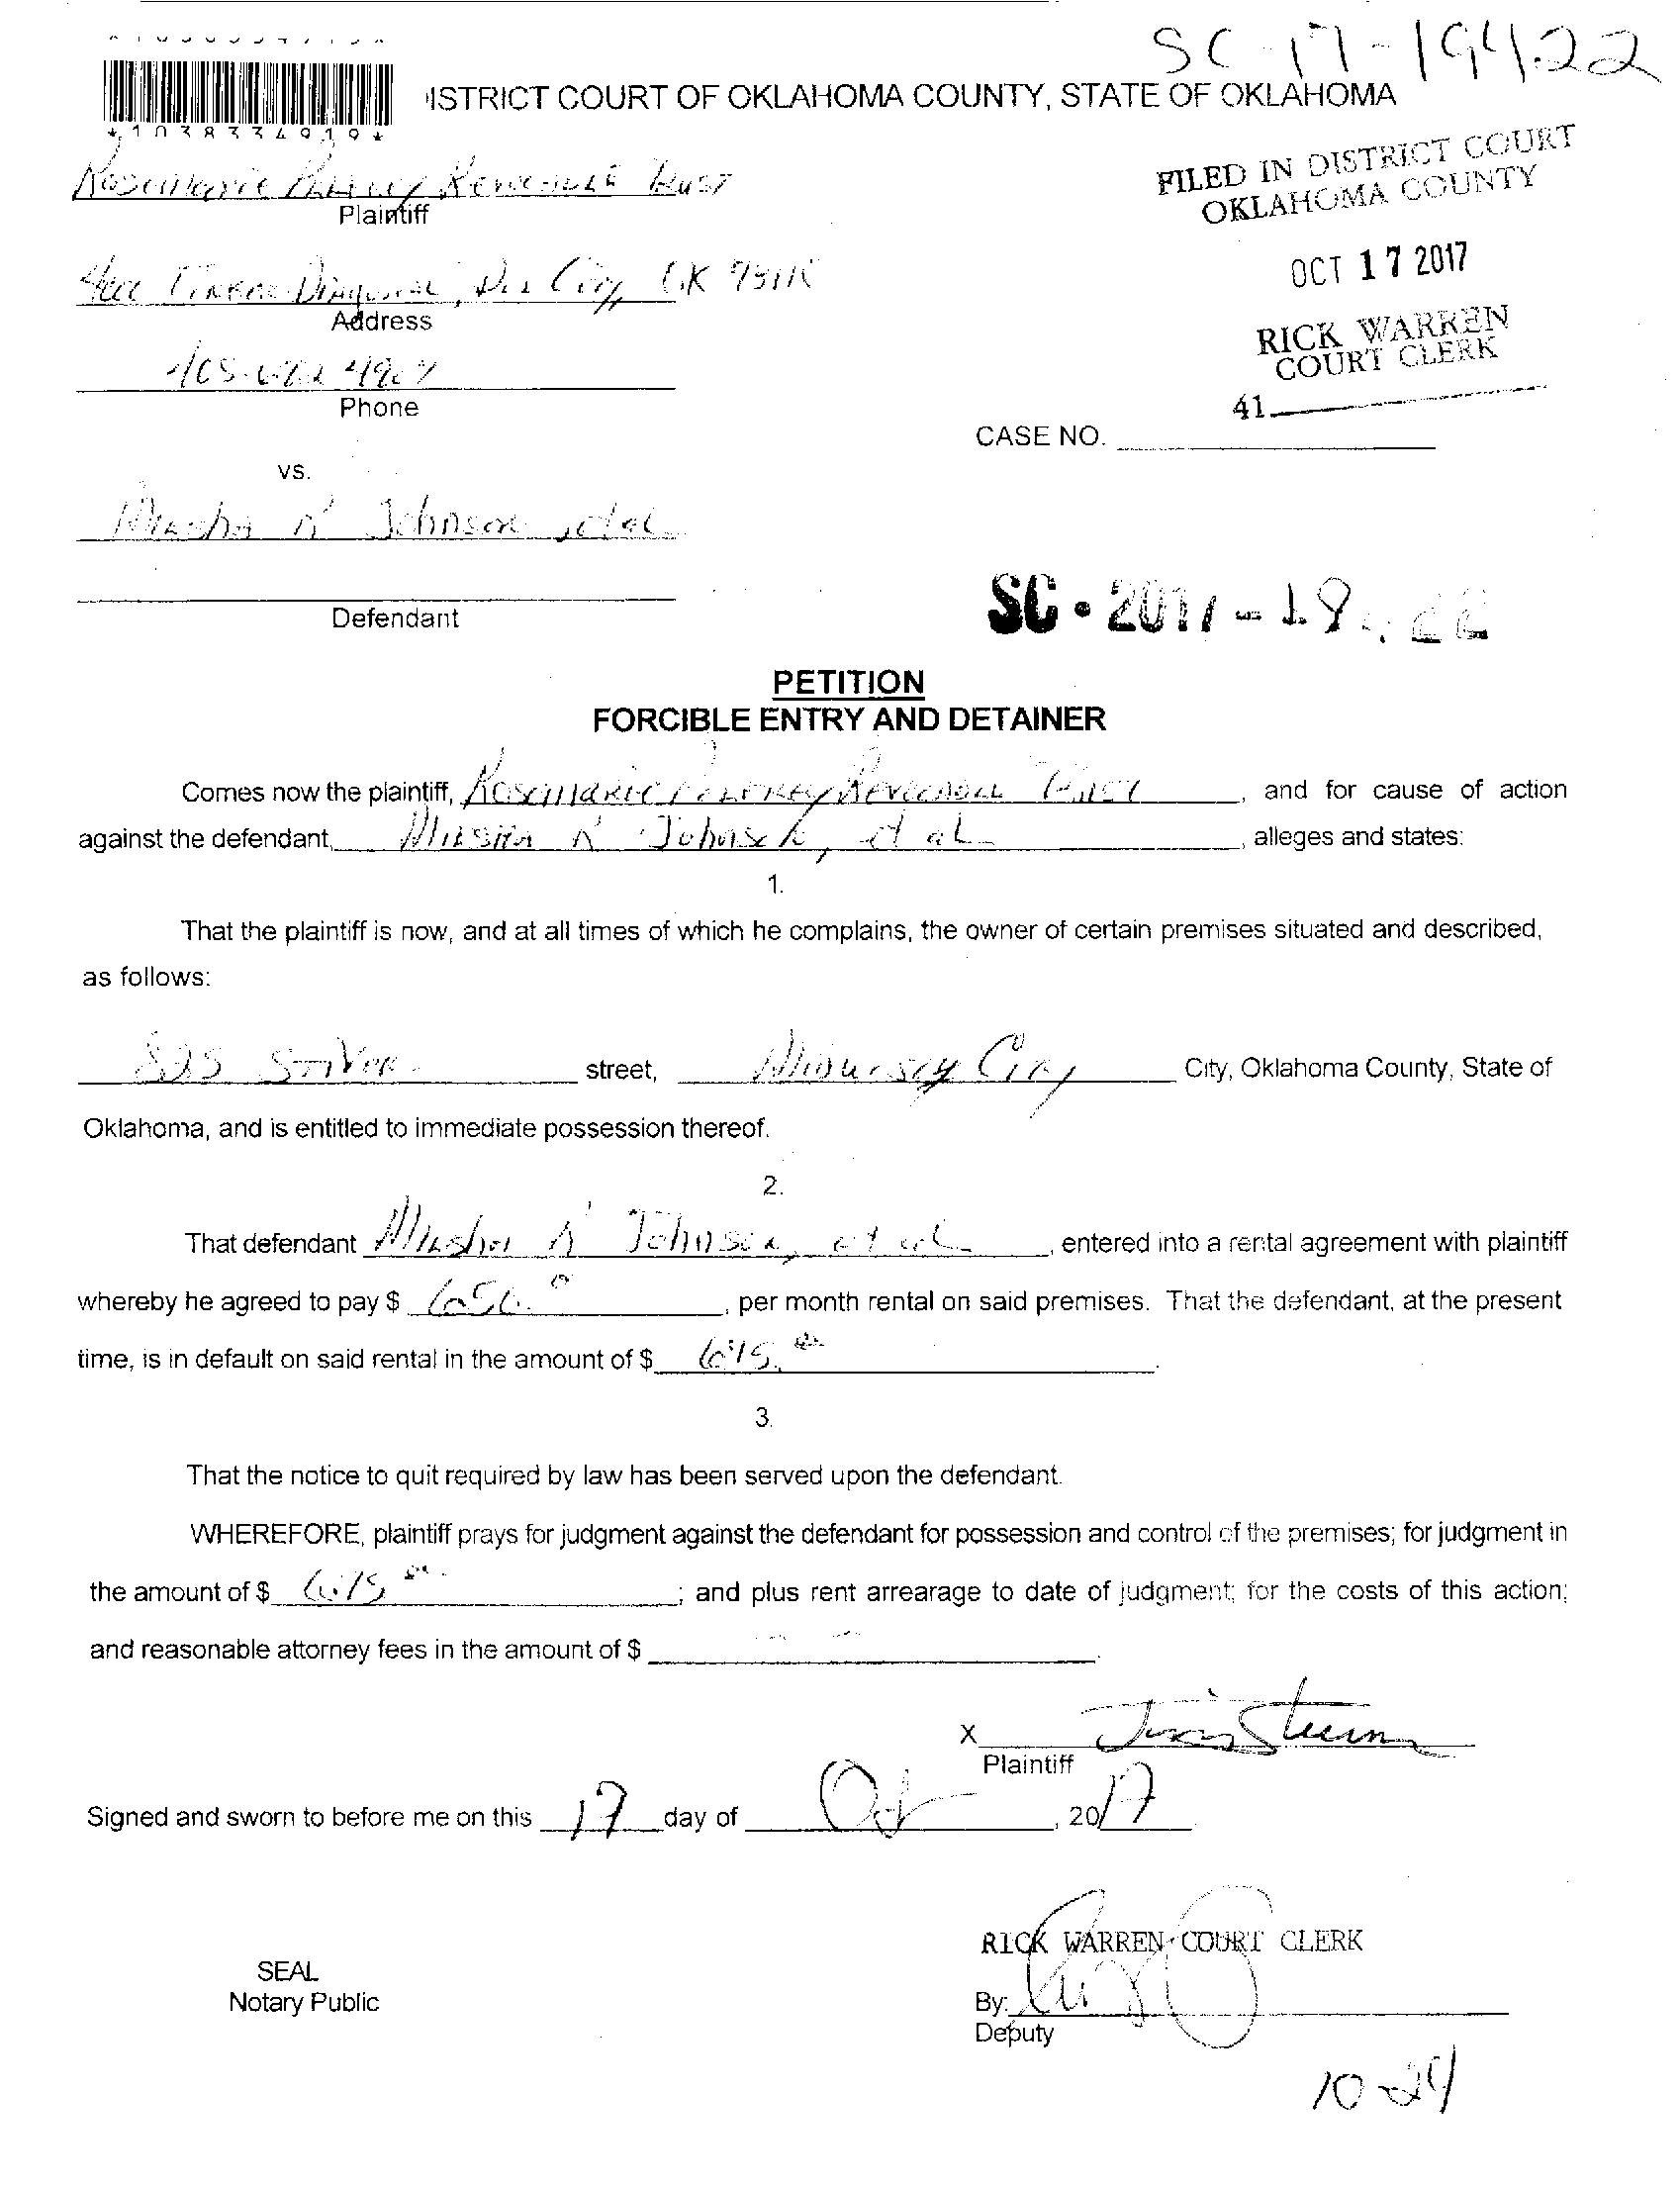 SC-17-19422
ISTRICT COURT OF OKLAHOMA COUNTY, STATE OF OKLAHOMA
*1038334919*
FILED IN DISTRICT COURT
OKLAHOMA COUNTY
Rosemarie Revocable Trust
Plaintiff
OCT 17 2017
Diagonal, Del City, OK 73115
Address
RICK WARREN
COURT CLERK
Phone
41
CASE NO.
vs.
N Johnson, et al
Defendant
SC-2017-19422
PETITION
FORCIBLE ENTRY AND DETAINER
Comes now the plaintiff, Rosemarie Revocable Trust, and for cause of action
against the defendant, N Johnson, et al, alleges and states:
1.
That the plaintiff is now, and at all times of which he complains, the owner of certain premises situated and described,
as follows:
825 street, Midwest City City, Oklahoma County, State of
Oklahoma, and is entitled to immediate possession thereof.
2.
That defendant N Johnson, et al, entered into a rental agreement with plaintiff
whereby he agreed to pay $, per month rental on said premises. That the defendant, at the present
time, is in default on said rental in the amount of $.
3.
That the notice to quit required by law has been served upon the defendant.
WHEREFORE, plaintiff prays for judgment against the defendant for possession and control of the premises; for judgment in
the amount of $; and plus rent arrearage to date of judgment; for the costs of this action;
and reasonable attorney fees in the amount of $.
X
Plaintiff
Signed and sworn to before me on this 17 day of Oct, 2017
RICK WARREN COURT CLERK
SEAL
Notary Public
By:
Deputy
10-24